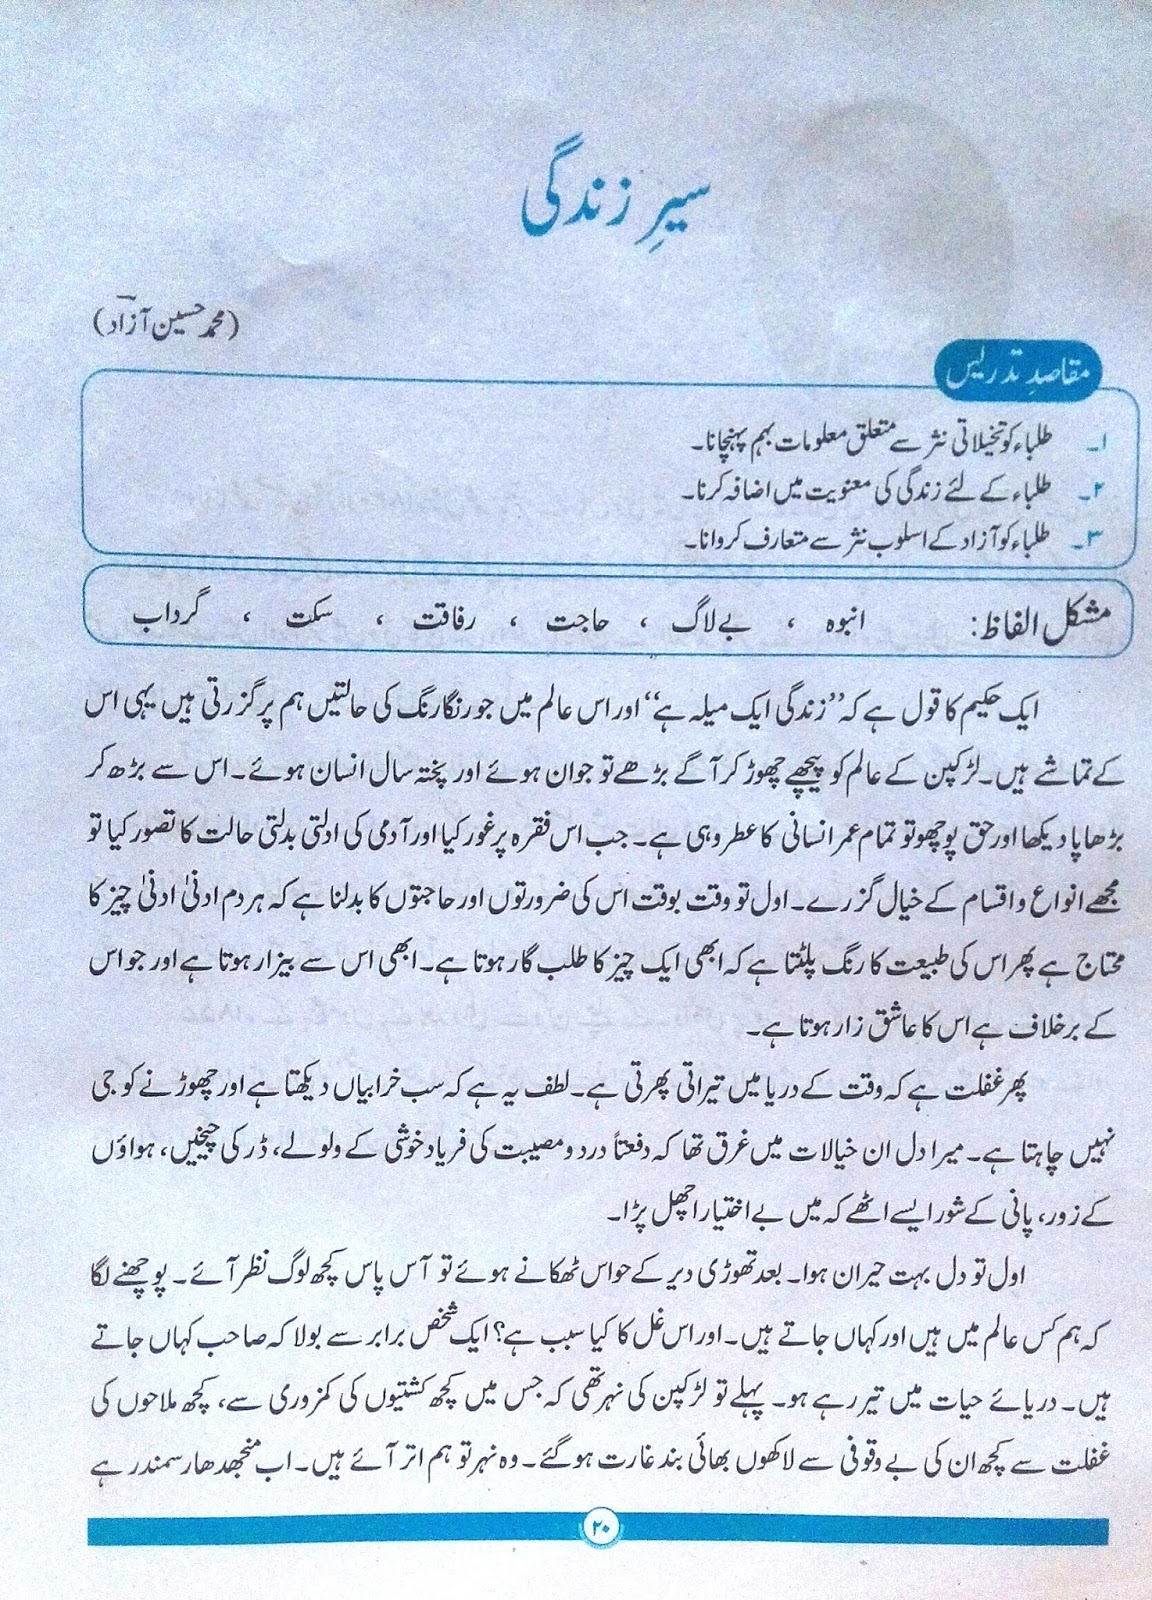 سیرِ زندگی
(محمد حسین آزاد)
مقاصدِ تدریس
۱۔ طلباء کو تخیلاتی نثر سے متعلق معلومات بہم پہنچانا۔
۲۔ طلباء کے لئے زندگی کی معنویت میں اضافہ کرنا۔
۳۔ طلباء کو آزاد کے اسلوب نثر سے متعارف کروانا۔
مشکل الفاظ: انبوہ ، بے لاگ ، حاجت ، رفاقت ، سکت ، گرداب
ایک حکیم کا قول ہے کہ ”زندگی ایک میلہ ہے“ اور اس عالم میں جو رنگا رنگ کی حالتیں ہم پر گزرتی ہیں یہی اس
کے تماشے ہیں۔ لڑکپن کے عالم کو پیچھے چھوڑ کر آگے بڑھے تو جوان ہوئے اور پختہ سال انسان ہوئے۔ اس سے بڑھ کر
بڑھاپا دیکھا اور حق پوچھو تو تمام عمر انسانی کا عطر وہی ہے۔ جب اس فقرہ پر غور کیا اور آدمی کی ادلتی بدلتی حالت کا تصور کیا تو
مجھے انواع و اقسام کے خیال گزرے۔ اول تو وقت بوقت اس کی ضرورتوں اور حاجتوں کا بدلنا ہے کہ ہر دم ادنیٰ ادنیٰ چیز کا
محتاج ہے پھر اس کی طبیعت کا رنگ پلٹتا ہے کہ ابھی ایک چیز کا طلب گار ہوتا ہے۔ ابھی اس سے بیزار ہوتا ہے اور جو اس
کے برخلاف ہے اس کا عاشق زار ہوتا ہے۔
پھر غفلت ہے کہ وقت کے دریا میں تیراتی پھرتی ہے۔ لطف یہ ہے کہ سب خرابیاں دیکھتا ہے اور چھوڑنے کو جی
نہیں چاہتا ہے۔ میرا دل ان خیالات میں غرق تھا کہ دفعتاً درد و مصیبت کی فریاد خوشی کے ولولے، ڈر کی چیخیں، ہواؤں
کے زور، پانی کے شور ایسے اٹھے کہ میں بے اختیار اچھل پڑا۔
اول تو دل بہت حیران ہوا۔ بعد تھوڑی دیر کے حواس ٹھکانے ہوئے تو آس پاس کچھ لوگ نظر آئے۔ پوچھنے لگا
کہ ہم کس عالم میں ہیں اور کہاں جاتے ہیں۔ اور اس غل کا کیا سبب ہے؟ ایک شخص برابر سے بولا کہ صاحب کہاں جاتے
ہیں۔ دریائے حیات میں تیر رہے ہو۔ پہلے تو لڑکپن کی نہر تھی کہ جس میں کچھ کشتیوں کی کمزوری سے، کچھ ملاحوں کی
غفلت سے کچھ ان کی بے وقوفی سے لاکھوں بھائی بند غارت ہو گئے۔ وہ نہر تو ہم اتر آئے ہیں۔ اب منجھدھار سمندر ہے
۲۰